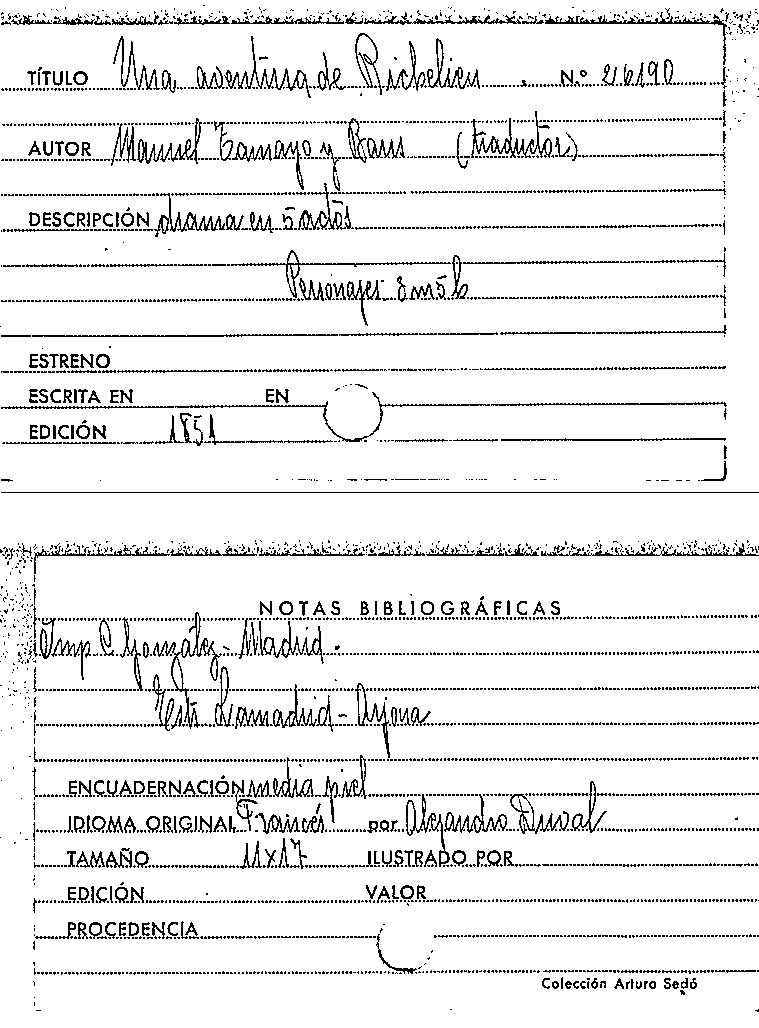 TÍTULO Una aventura de Richelieu . N.º 216190
AUTOR Manuel Tamayo y Baus (traductor)
DESCRIPCIÓN drama en 5 actos
Personajes 8 m 5 h
ESTRENO
ESCRITA EN EN
EDICIÓN 1851
NOTAS BIBLIOGRÁFICAS
Imp C. González - Madrid.
Estr Lamadrid - Arjona
ENCUADERNACIÓN media piel
IDIOMA ORIGINAL Francés por Alejandro Duval
TAMAÑO 11x17 ILUSTRADO POR
EDICIÓN VALOR
PROCEDENCIA
Colección Arturo Sedó